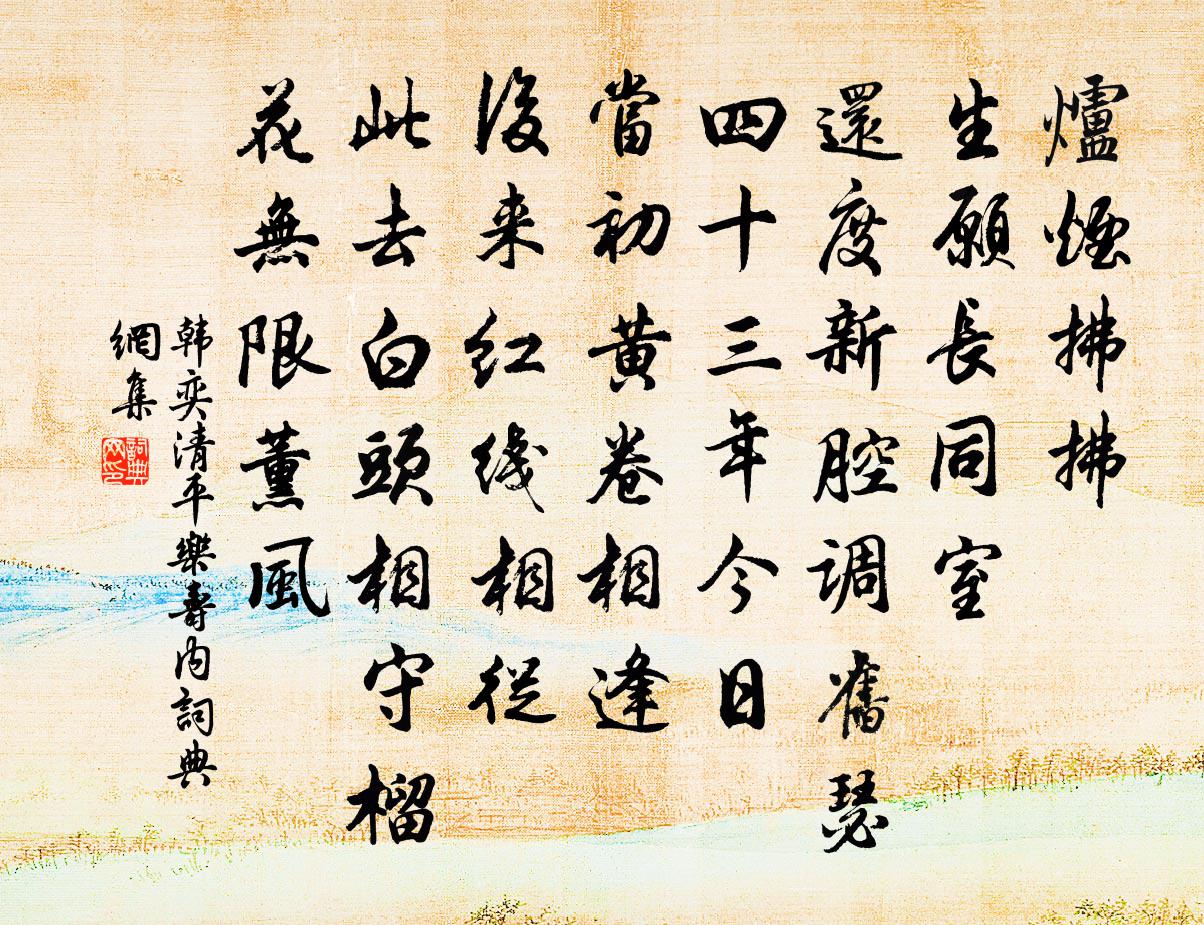 爐煙拂拂
生願長同室
還度新腔調舊瑟
四十三年今日
當初黃卷相逢
後来红线相從
此去白頭相守榴
花無限薰風
韩奕清平樂壽内詞典
網集
詞典
网印